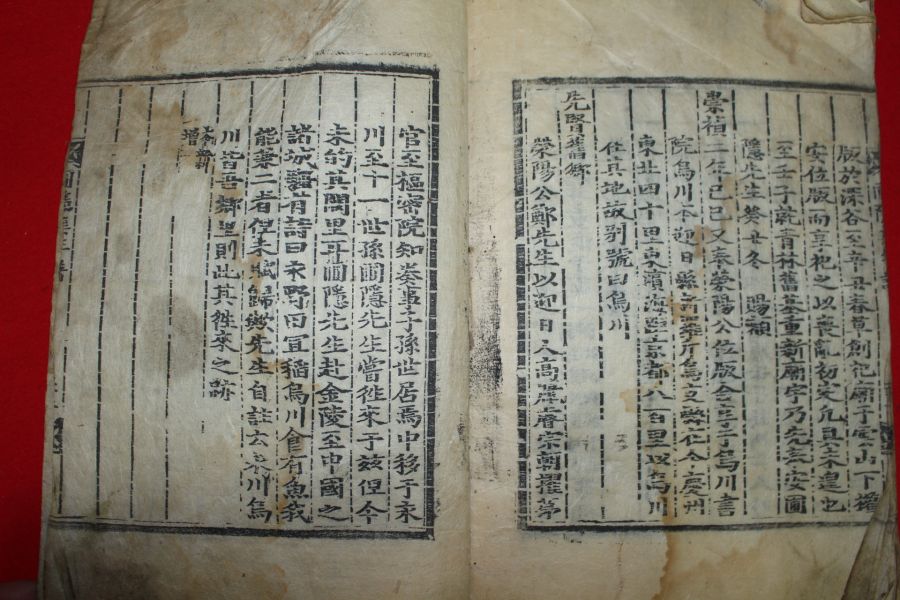 版於深谷至辛丑春草創祀廟子雲山下權
安位版而享祀之以喪亂初定凡具未遑也
至壬子乾青林舊基重新廟宇乃先奉安圃
隱先生祭廿冬 賜額
崇禎二年己巳又奉滎陽公位版合享于烏川書
院烏川今迎日縣
東北四十里東濱海距京都八百里以烏川
仕真地故別號曰烏川
先賢舊鄉
滎陽公鄭先生以迎日人高麗睿宗朝擢第
官至樞密院知奏事子孫世居焉中移于永
川至十一世孫圃隱先生嘗徃來于玆但今
未的其閭里耳圃隱先生赴金陵至中國之
諸城驛有詩曰永野田宜稻烏川食有魚我
能兼二者但未賦歸歟先生自註云永川烏
川皆吾鄉里則此其徃來之跡
增